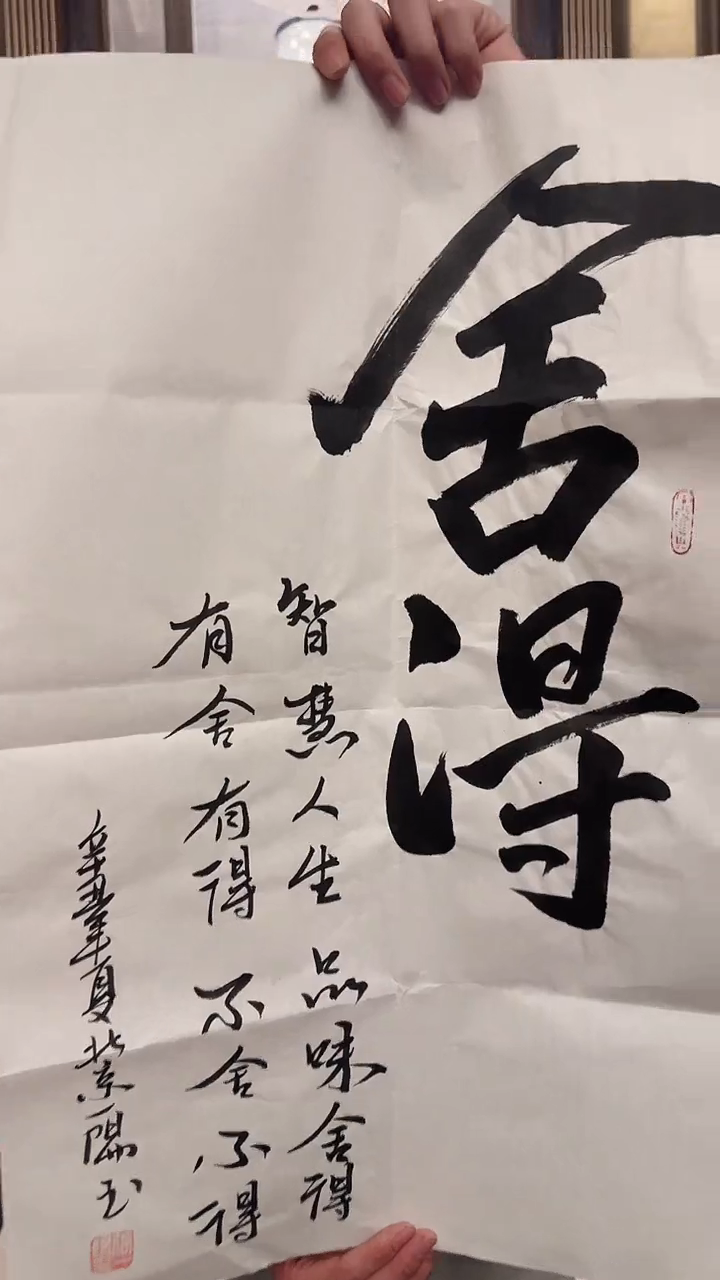 舍得
智慧人生品味舍得
有舍有得不舍不得
辛丑年夏北京一隅玉